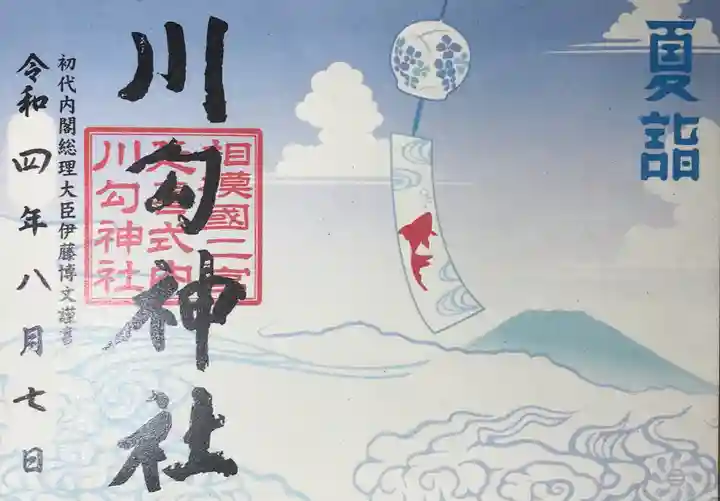 夏詣
川勾神社
相模國二宮
延喜式内
川勾神社
初代内閣総理大臣伊藤博文謹書
令和四年八月七日